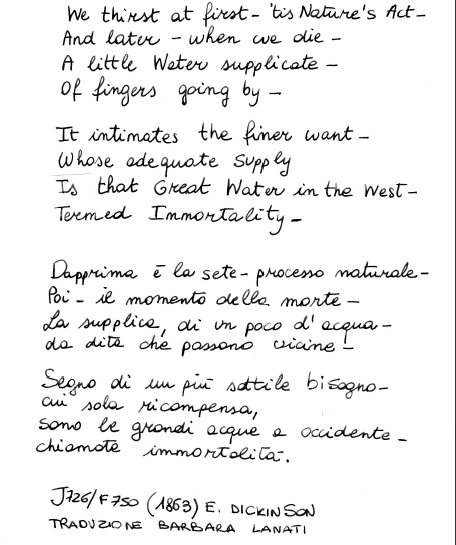 We thirst at first - 'tis Nature's Act -
And later - when we die -
A little Water supplicate -
Of fingers going by -
It intimates the finer want -
Whose adequate supply
Is that Great Water in the West -
Termed Immortality -
Dapprima è la sete - processo naturale -
Poi - il momento della morte -
La supplica, di un poco d'acqua -
da dita che passano vicine -
Segno di un più sottile bisogno -
cui sola ricompensa,
sono le grandi acque a occidente -
chiamate immortalità.
J726/F750 (1863) E. DICKINSON
TRADUZIONE BARBARA LANATI